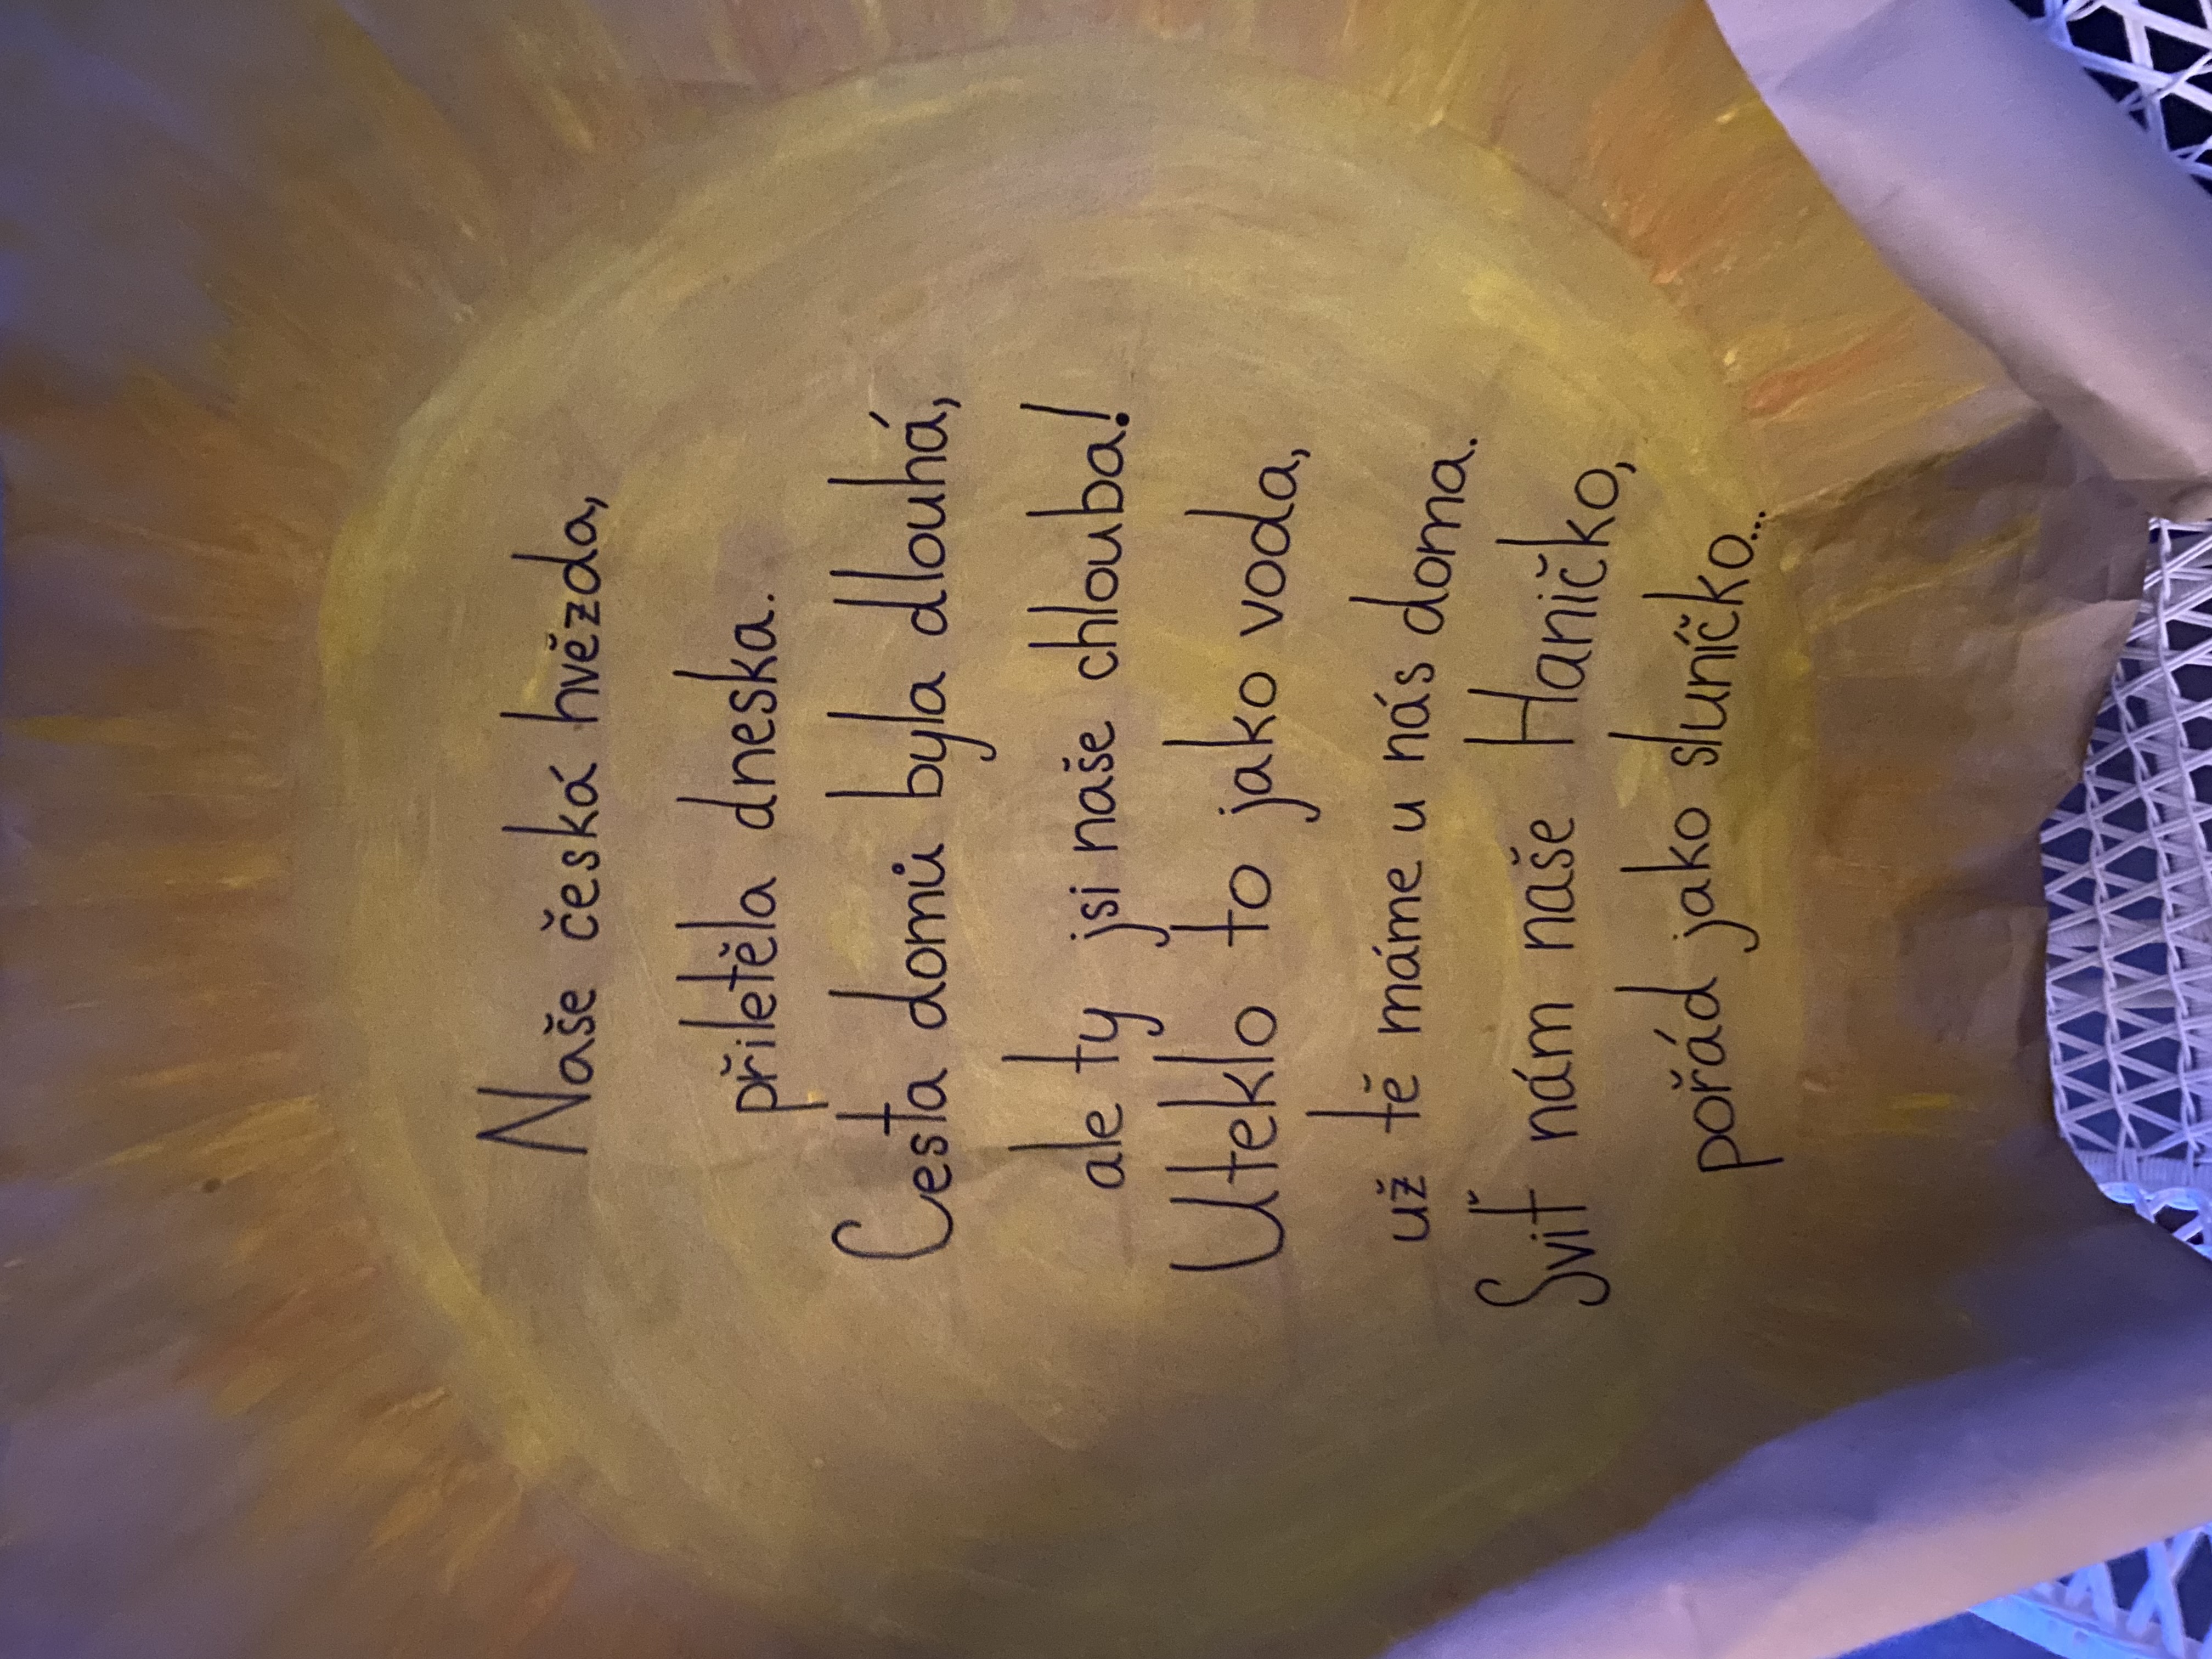 Naše česká hvězda,
přiletěla dneska.
Cesta domů byla dlouhá,
ale ty jsi naše chlouba!
Uteklo to jako voda,
už tě máme u nás doma.
Sviť nám naše Haničko,
pořád jako sluníčko...